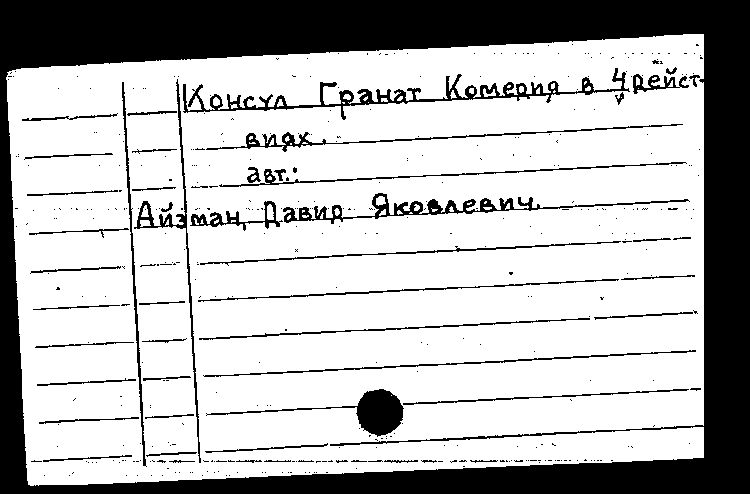 Консул Гранат Комедия в 4 дейст-
виях.
авт.:
Айзман, Давид Яковлевич.